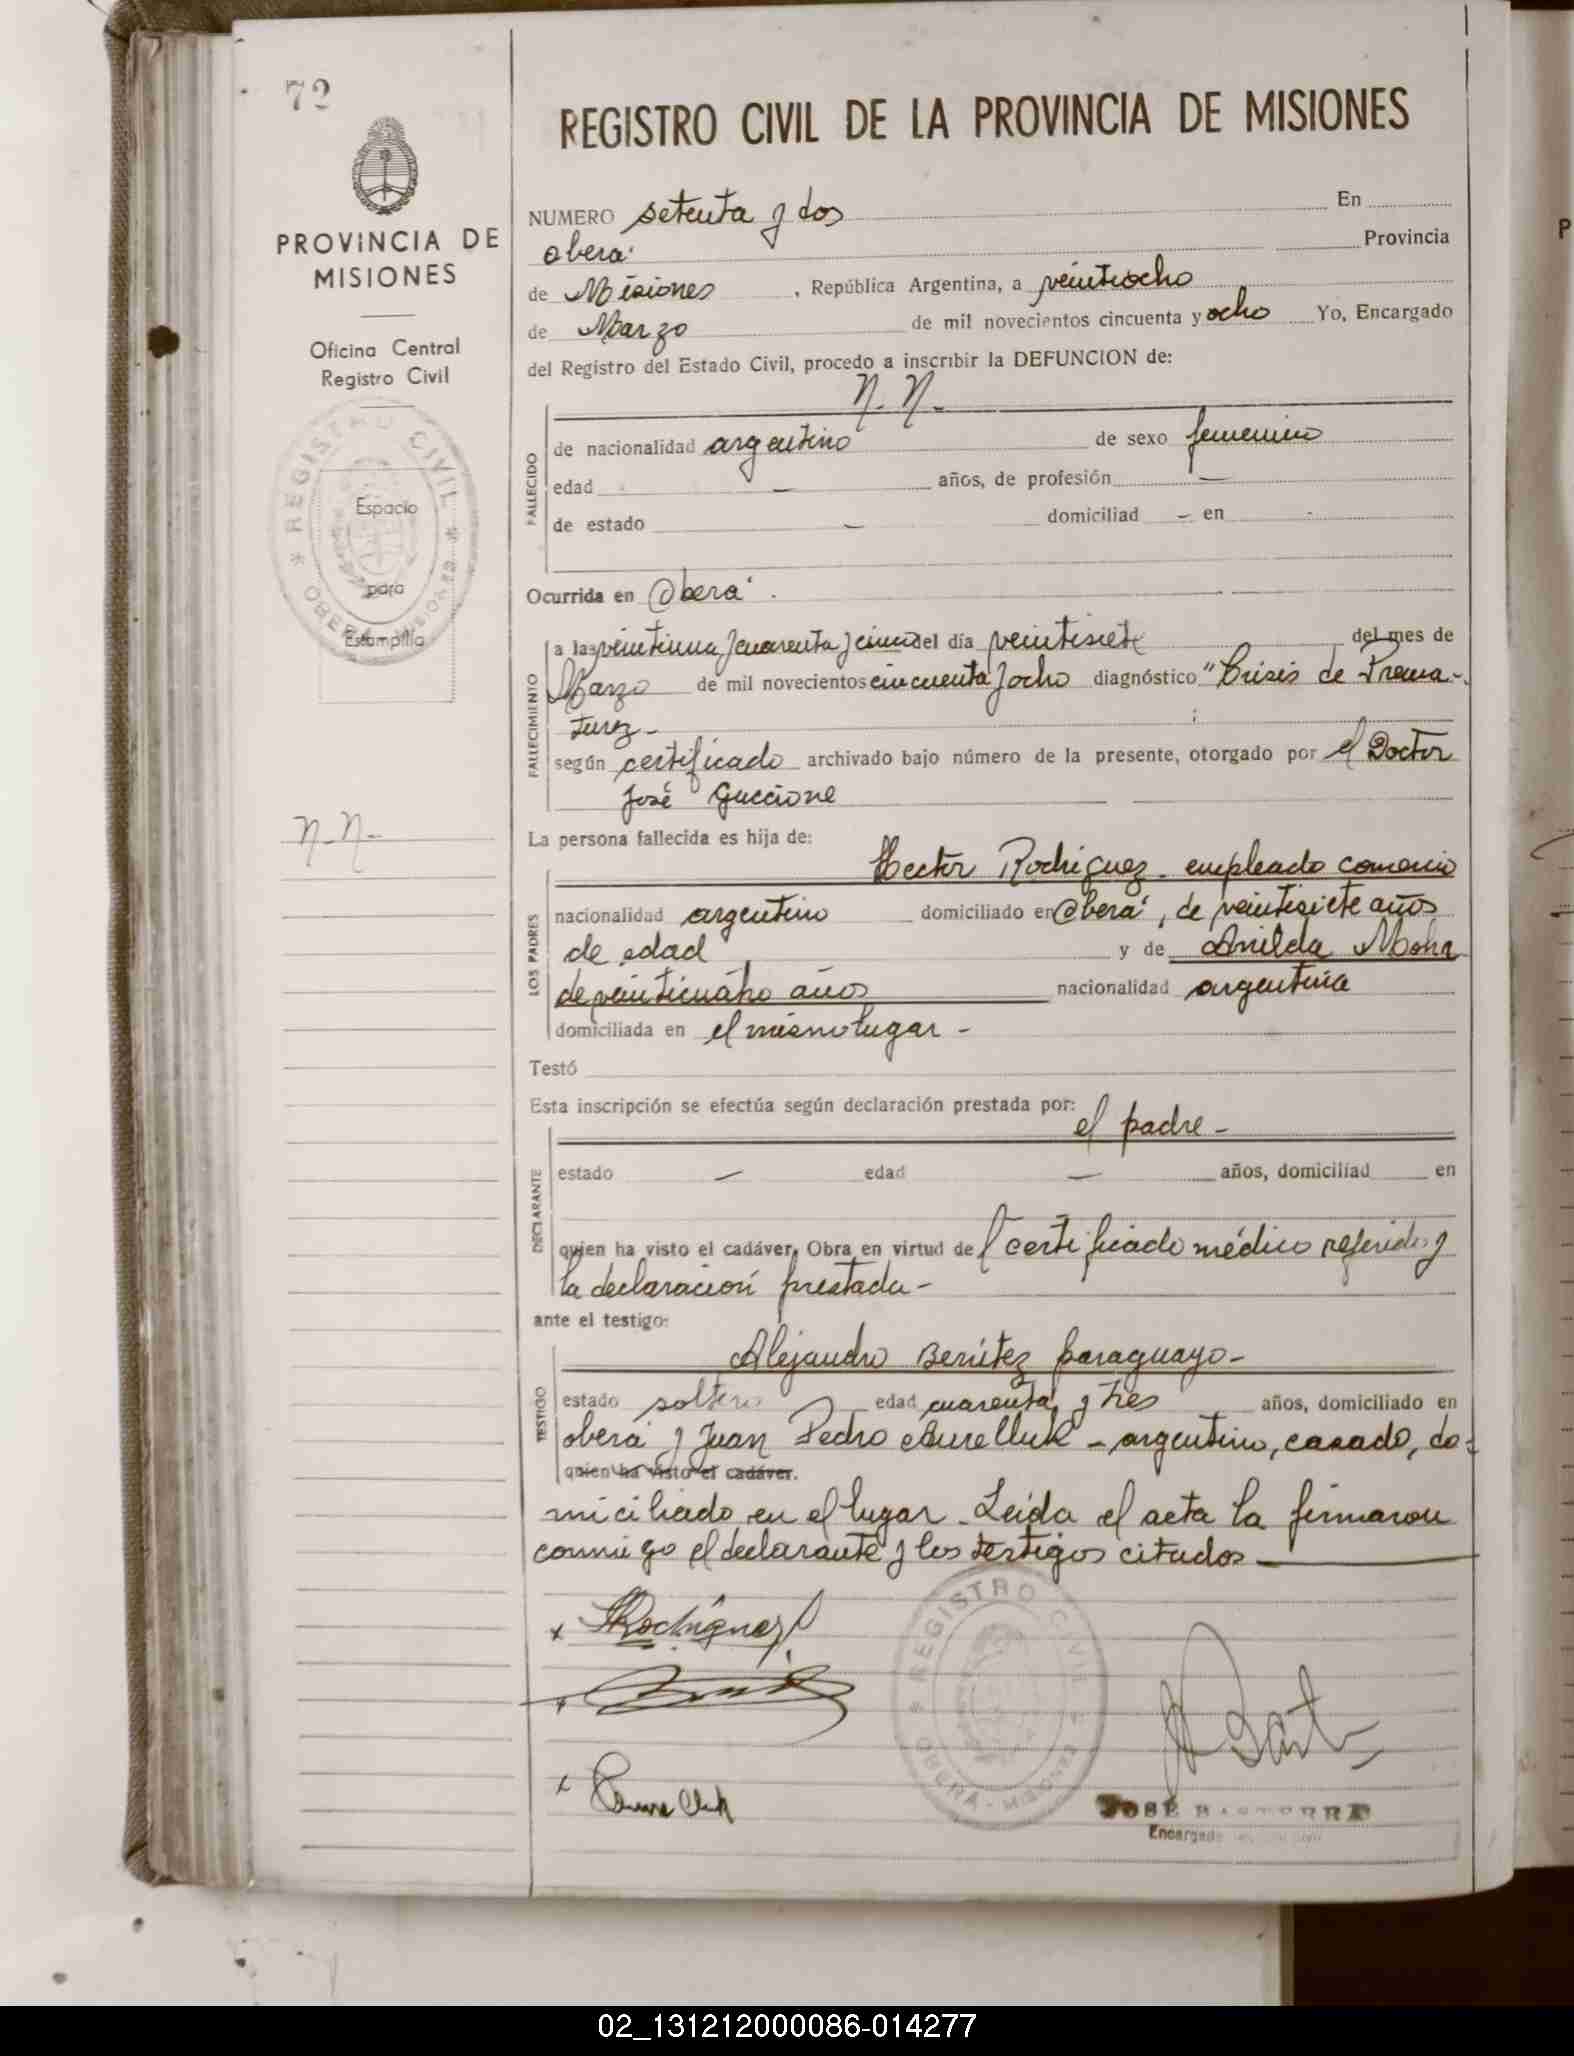 72
PROVINCIA DE
MISIONES
Oficina Central
Registro Civil
REGISTRO CIVIL
OBERA MISIONES
Espacio
para
Estampilla
N.N.-
REGISTRO CIVIL DE LA PROVINCIA DE MISIONES
NUMERO setenta y dos En
obera' Provincia
de Misiones , República Argentina, a veintiocho
de Marzo de mil novecientos cincuenta y ocho Yo, Encargado
del Registro del Estado Civil, procedo a inscribir la DEFUNCION de:
N. N. -
FALLECIDO
de nacionalidad argentino de sexo femenino
edad — años, de profesión —
de estado — domiciliad - en -
Ocurrida en Obera' .
FALLECIMIENTO
a las veintiuna y cuarenta y cinco del día veintisiete del mes de
Marzo de mil novecientos cincuenta y ocho diagnóstico "Crisis de Prema-
turez -
según certificado archivado bajo número de la presente, otorgado por el Doctor
José Guccione
La persona fallecida es hija de:
LOS PADRES
Hector Rodriguez - empleado comercio
nacionalidad argentino domiciliado en Obera', de veintisiete años
de edad y de Anilda Mohr
de veinticuatro años nacionalidad argentina
domiciliada en el mismo lugar -
Testó
Esta inscripción se efectúa según declaración prestada por:
el padre -
DECLARANTE
estado — edad — años, domiciliad en
quien ha visto el cadáver. Obra en virtud de l certificado médico referido y
la declaración prestada -
ante el testigo:
TESTIGO
Alejandro Benítez paraguayo -
estado soltero edad cuarenta y tres años, domiciliado en
obera' y Juan Pedro - argentino, casado, do-
quien ha visto el cadáver.
miciliado en el lugar - Leida el acta la firmaron
conmigo el declarante y los testigos citados —
x HRodriguez
x
x
REGISTRO CIVIL
OBERA - MISIONES
JOSÉ BASTERRE
Encargado
02_131212000086-014277